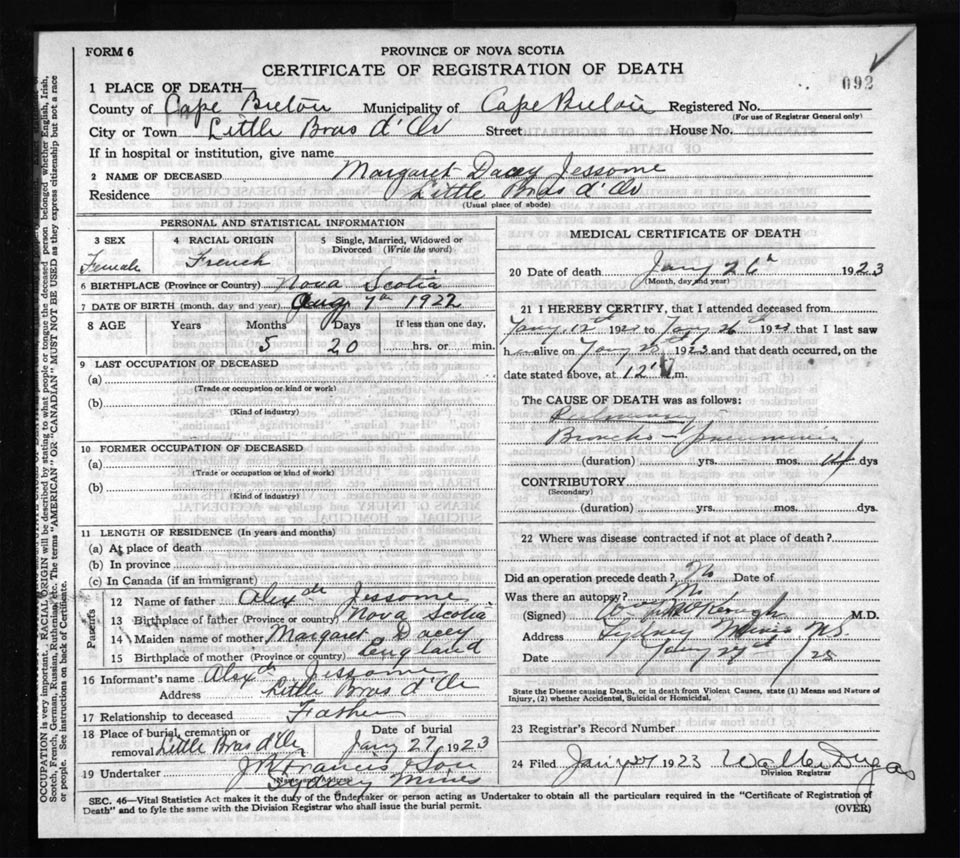 FORM 6
PROVINCE OF NOVA SCOTIA
CERTIFICATE OF REGISTRATION OF DEATH
092
1 PLACE OF DEATH—
County of Cape Breton Municipality of Cape Breton Registered No.
(For use of Registrar General only)
City or Town Little Bras d'Or Street House No.
If in hospital or institution, give name
2 NAME OF DECEASED Margaret Dacey Jessome
Residence Little Bras d'Or
(Usual place of abode)
PERSONAL AND STATISTICAL INFORMATION
3 SEX 4 RACIAL ORIGIN 5 Single, Married, Widowed or Divorced (Write the word)
Female French
6 BIRTHPLACE (Province or Country) Nova Scotia
7 DATE OF BIRTH (month, day and year) Aug 7th 1922
8 AGE Years Months Days If less than one day,
5 20 hrs. or min.
9 LAST OCCUPATION OF DECEASED
(a)
(Trade or occupation or kind or work)
(b)
(Kind of industry)
10 FORMER OCCUPATION OF DECEASED
(a)
(Trade or occupation or kind of work)
(b)
(Kind of industry)
11 LENGTH OF RESIDENCE (In years and months)
(a) At place of death
(b) In province
(c) In Canada (if an immigrant)
Parents
12 Name of father Alexdr Jessome
13 Birthplace of father (Province or country) Nova Scotia
14 Maiden name of mother Margaret Dacey
15 Birthplace of mother (Province or country) England
16 Informant's name Alexdr Jessome
Address Little Bras d'Or
17 Relationship to deceased Father
18 Place of burial, cremation or removal Little Bras d'Or Date of burial Jany 27 1923
19 Undertaker J R Francis & Son
(Name and Address)
Sydney Mines
MEDICAL CERTIFICATE OF DEATH
20 Date of death Jany 26th 1923
(Month, day and year)
21 I HEREBY CERTIFY, that I attended deceased from
Jany 12th 1923 to Jany 26th 1923 that I last saw
h alive on Jany 1923 and that death occurred, on the
date stated above, at 12 m.
The CAUSE OF DEATH was as follows:
Pulmonary
Broncho-pneumonia
(duration) yrs. mos. 14 dys
CONTRIBUTORY
(Secondary)
(duration) yrs. mos. dys.
22 Where was disease contracted if not at place of death?
Did an operation precede death? No Date of
Was there an autopsy? No
(Signed) M.D.
Address Sydney Mines N.S.
Date Jany
State the Disease causing Death, or in death from Violent Causes, state (1) Means and Nature of
Injury, (2) whether Accidental, Suicidal or Homicidal.
23 Registrar's Record Number
24 Filed Jany 27 1923 Walter Dugas
Division Registrar
SEC. 46—Vital Statistics Act makes it the duty of the Undertaker or person acting as Undertaker to obtain all the particulars required in the "Certificate of Registration of
Death" and to fyle the same with the Division Registrar who shall issue the burial permit. (OVER)
OCCUPATION is very important. RACIAL ORIGIN will be described by stating to what people or tongue the deceased person belonged whether English, Irish,
Scotch, French, German, Russian, Ruthenian, etc. The terms "AMERICAN" OR "CANADIAN" MUST NOT BE USED as they express citizenship but not a race
or people. See instructions on back of Certificate.